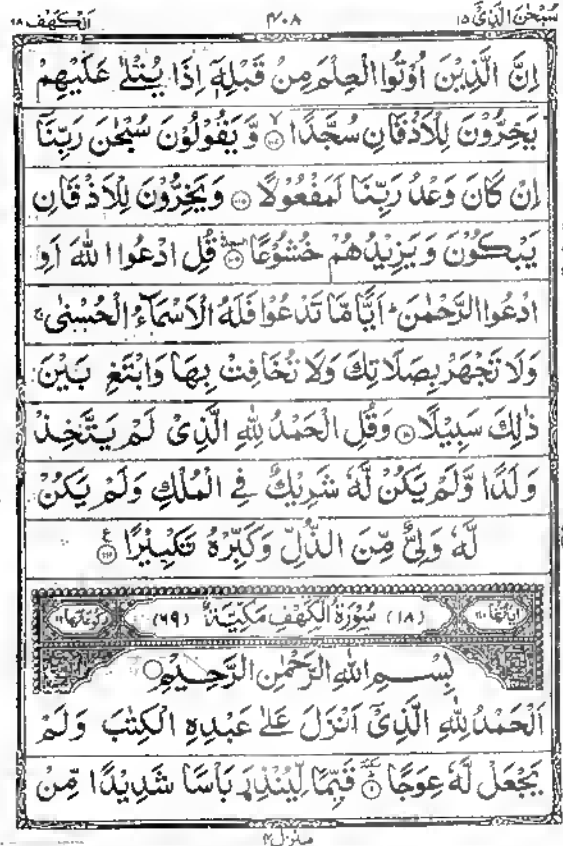 سُبْحٰنَ الَّذِیْۤ ١٥
٤٠٨
اَلْکَهْف ١٨
اِنَّ الَّذِیْنَ اُوْتُوا الْعِلْمَ مِنْ قَبْلِهٖۤ اِذَا یُتْلٰی عَلَیْهِمْ
یَخِرُّوْنَ لِلْاَذْقَانِ سُجَّدًا ۙ﴿١٠٧﴾ وَّ یَقُوْلُوْنَ سُبْحٰنَ رَبِّنَاۤ
اِنْ کَانَ وَعْدُ رَبِّنَا لَمَفْعُوْلًا ﴿١٠٨﴾ وَ یَخِرُّوْنَ لِلْاَذْقَانِ
یَبْکُوْنَ وَ یَزِیْدُهُمْ خُشُوْعًا ﴿١٠٩﴾ قُلِ ادْعُوا اللّٰهَ اَوِ
ادْعُوا الرَّحْمٰنَ ؕ اَیًّا مَّا تَدْعُوْا فَلَهُ الْاَسْمَآءُ الْحُسْنٰی ۚ
وَلَا تَجْهَرْ بِصَلَاتِكَ وَلَا تُخَافِتْ بِهَا وَابْتَغِ بَیْنَ
ذٰلِكَ سَبِیْلًا ﴿١١٠﴾ وَقُلِ الْحَمْدُ لِلّٰهِ الَّذِیْ لَمْ یَتَّخِذْ
وَلَدًا وَّلَمْ یَکُنْ لَّهٗ شَرِیْكٌ فِی الْمُلْكِ وَلَمْ یَکُنْ
لَّهٗ وَلِیٌّ مِّنَ الذُّلِّ وَکَبِّرْهُ تَکْبِیْرًا ﴿١١١﴾ ع
اٰیاتها ١١٠
(١٨) سُوْرَةُ الْکَهْفِ مَکِّیَّةٌ (٦٩)
رکوعاتها ١٢
بِسْمِ اللّٰهِ الرَّحْمٰنِ الرَّحِیْمِ
اَلْحَمْدُ لِلّٰهِ الَّذِیْۤ اَنْزَلَ عَلٰی عَبْدِهِ الْکِتٰبَ وَلَمْ
یَجْعَلْ لَّهٗ عِوَجًا ﴿١﴾ قَیِّمًا لِّیُنْذِرَ بَاْسًا شَدِیْدًا مِّنْ
منزل ٤